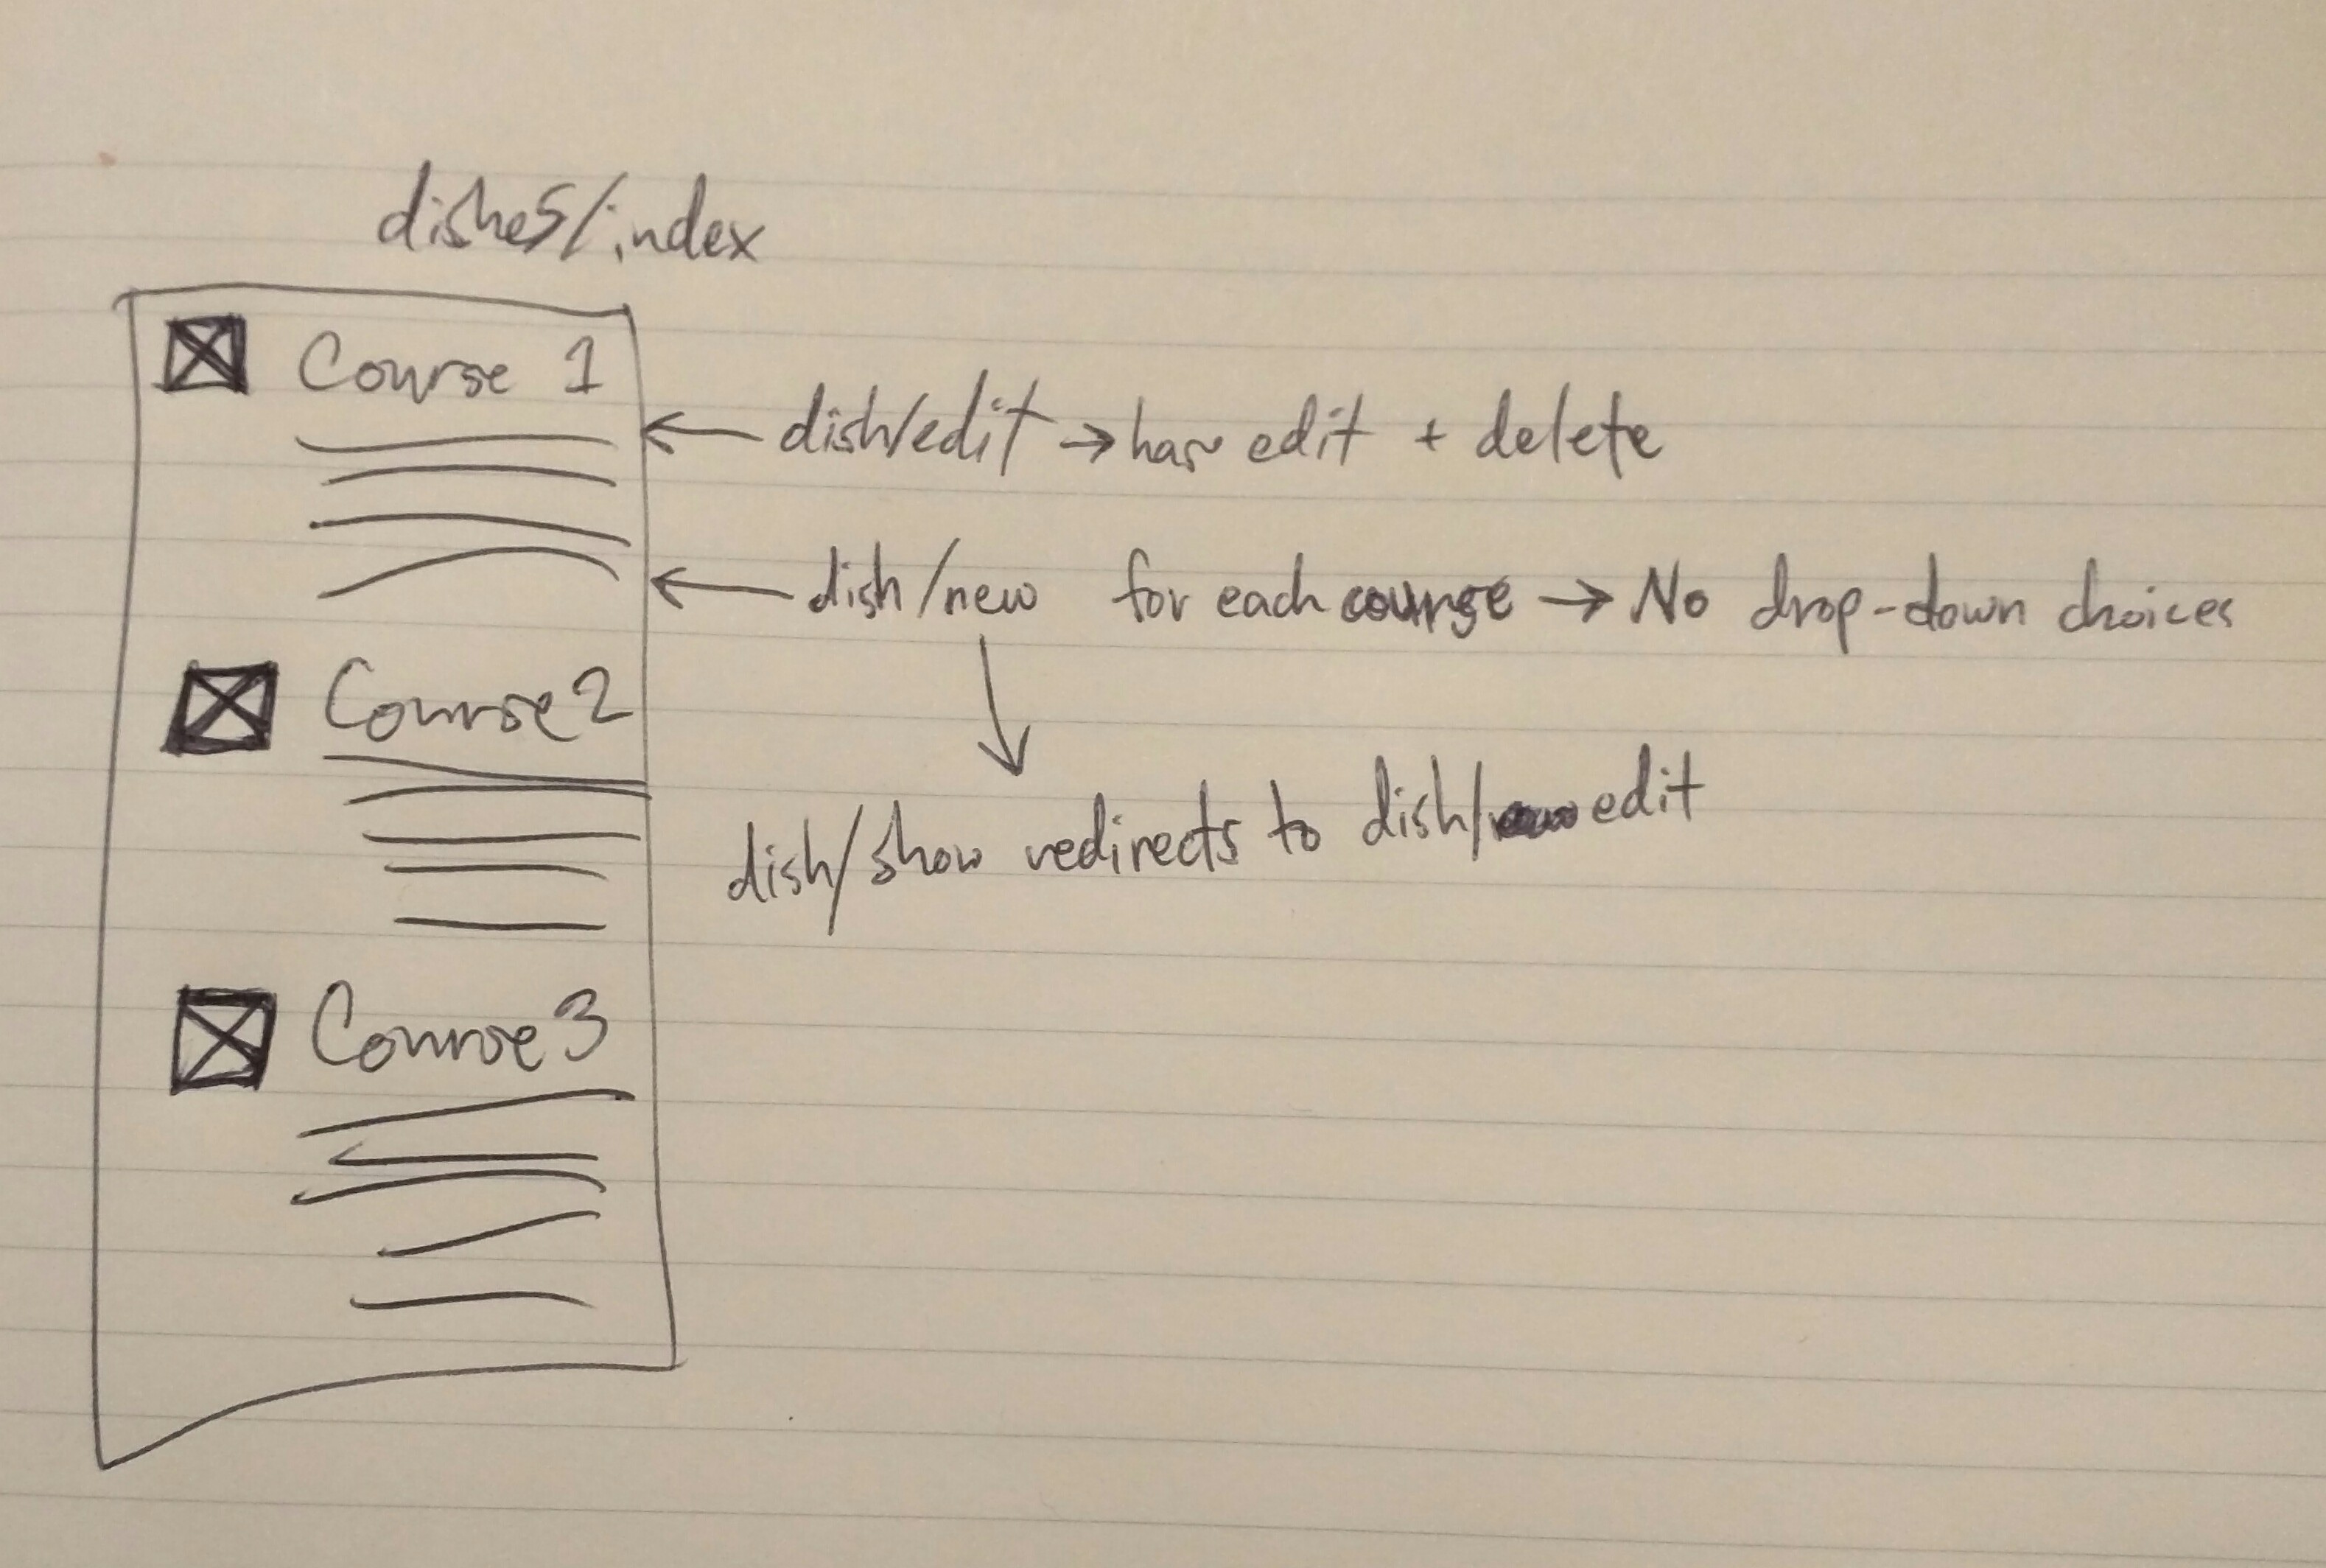 dishes/index
Course 1
dish/edit → has edit + delete
dish/new for each course → No drop-down choices
Course 2
dish/show redirects to dish/ edit
Course 3